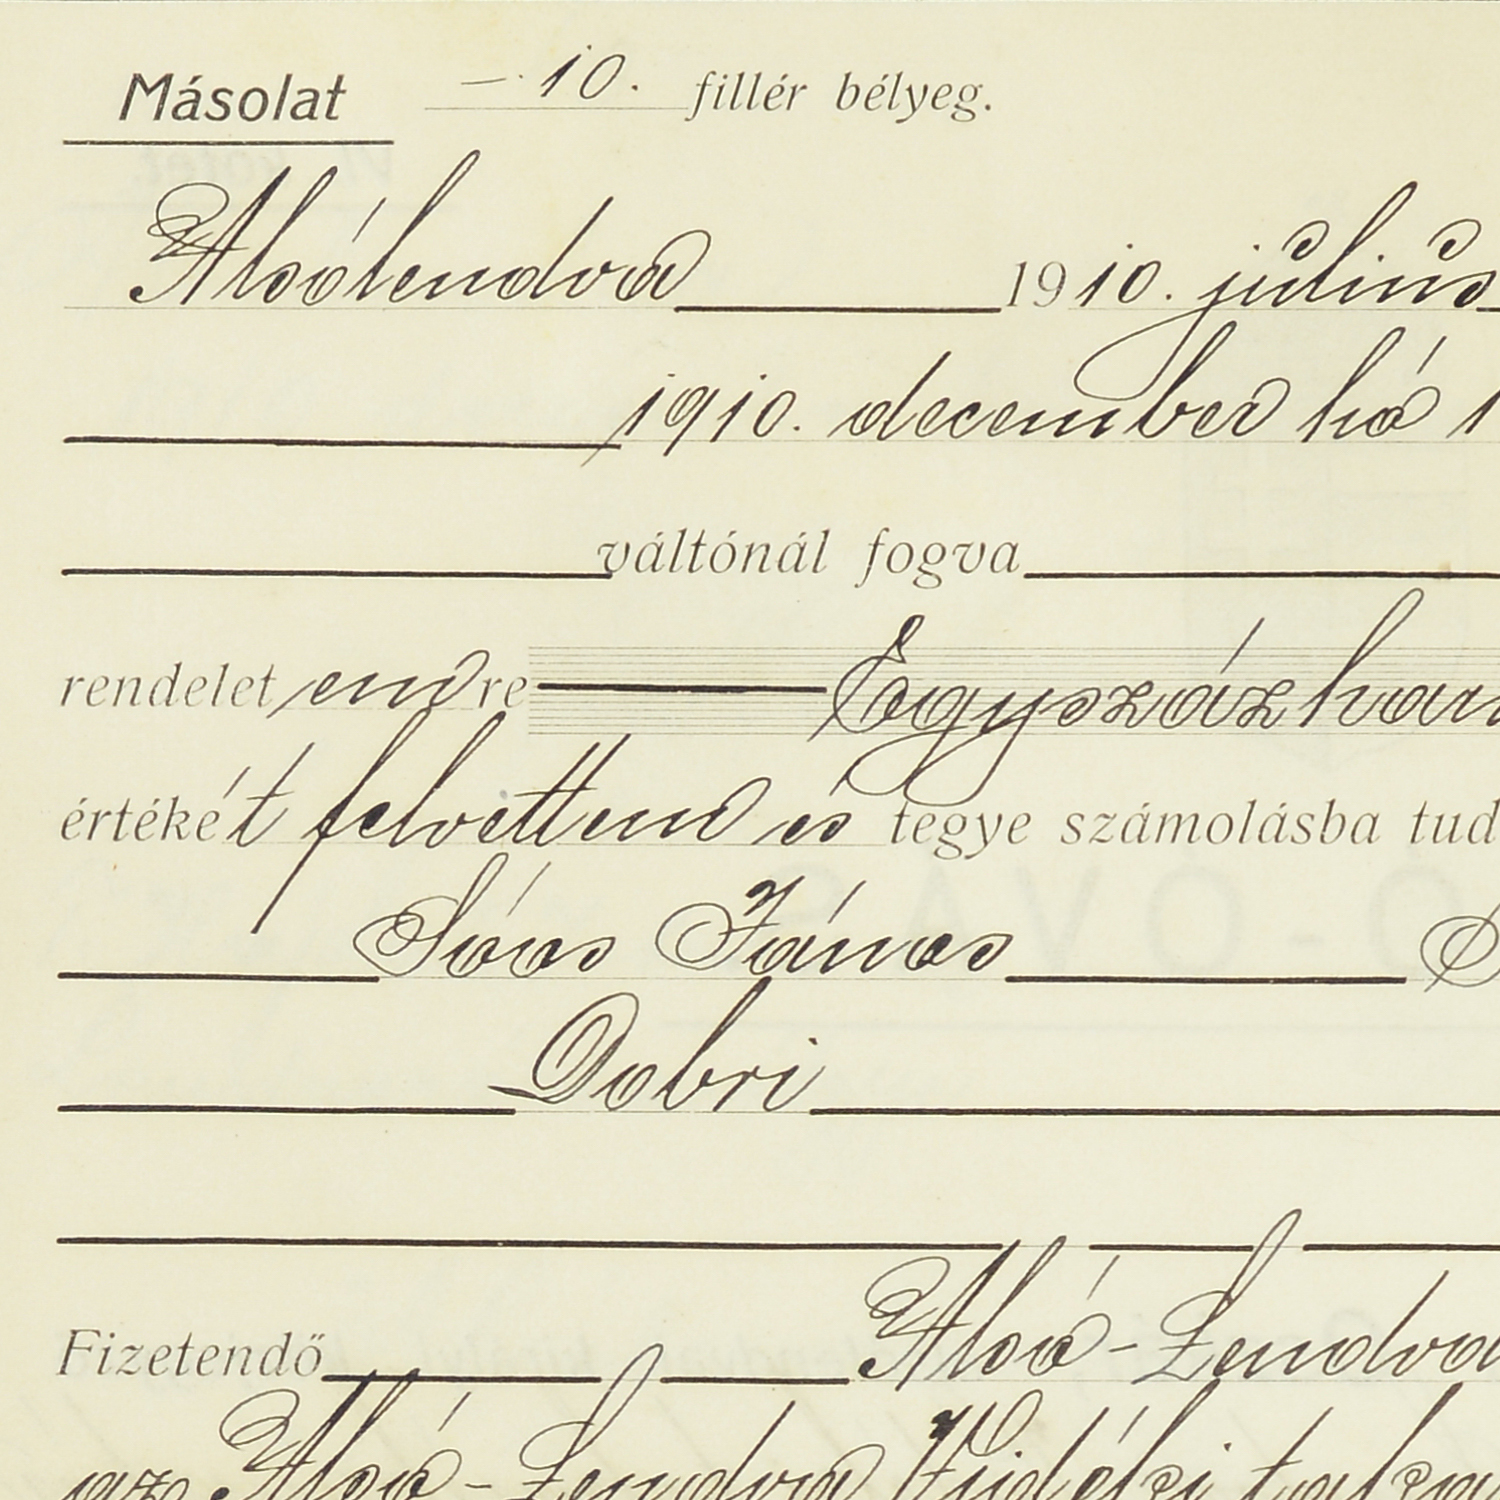 Másolat – 10. fillér bélyeg.
Alsólendva 1910. július
1910. december hó 1
váltónál fogva
rendelet em re Egyszázhar
értékét felvettem és tegye számolásba tud
Sóos János
Dobri
Fizetendő Alsó-Lendva
az Alsó-Lendva Vidéki taka